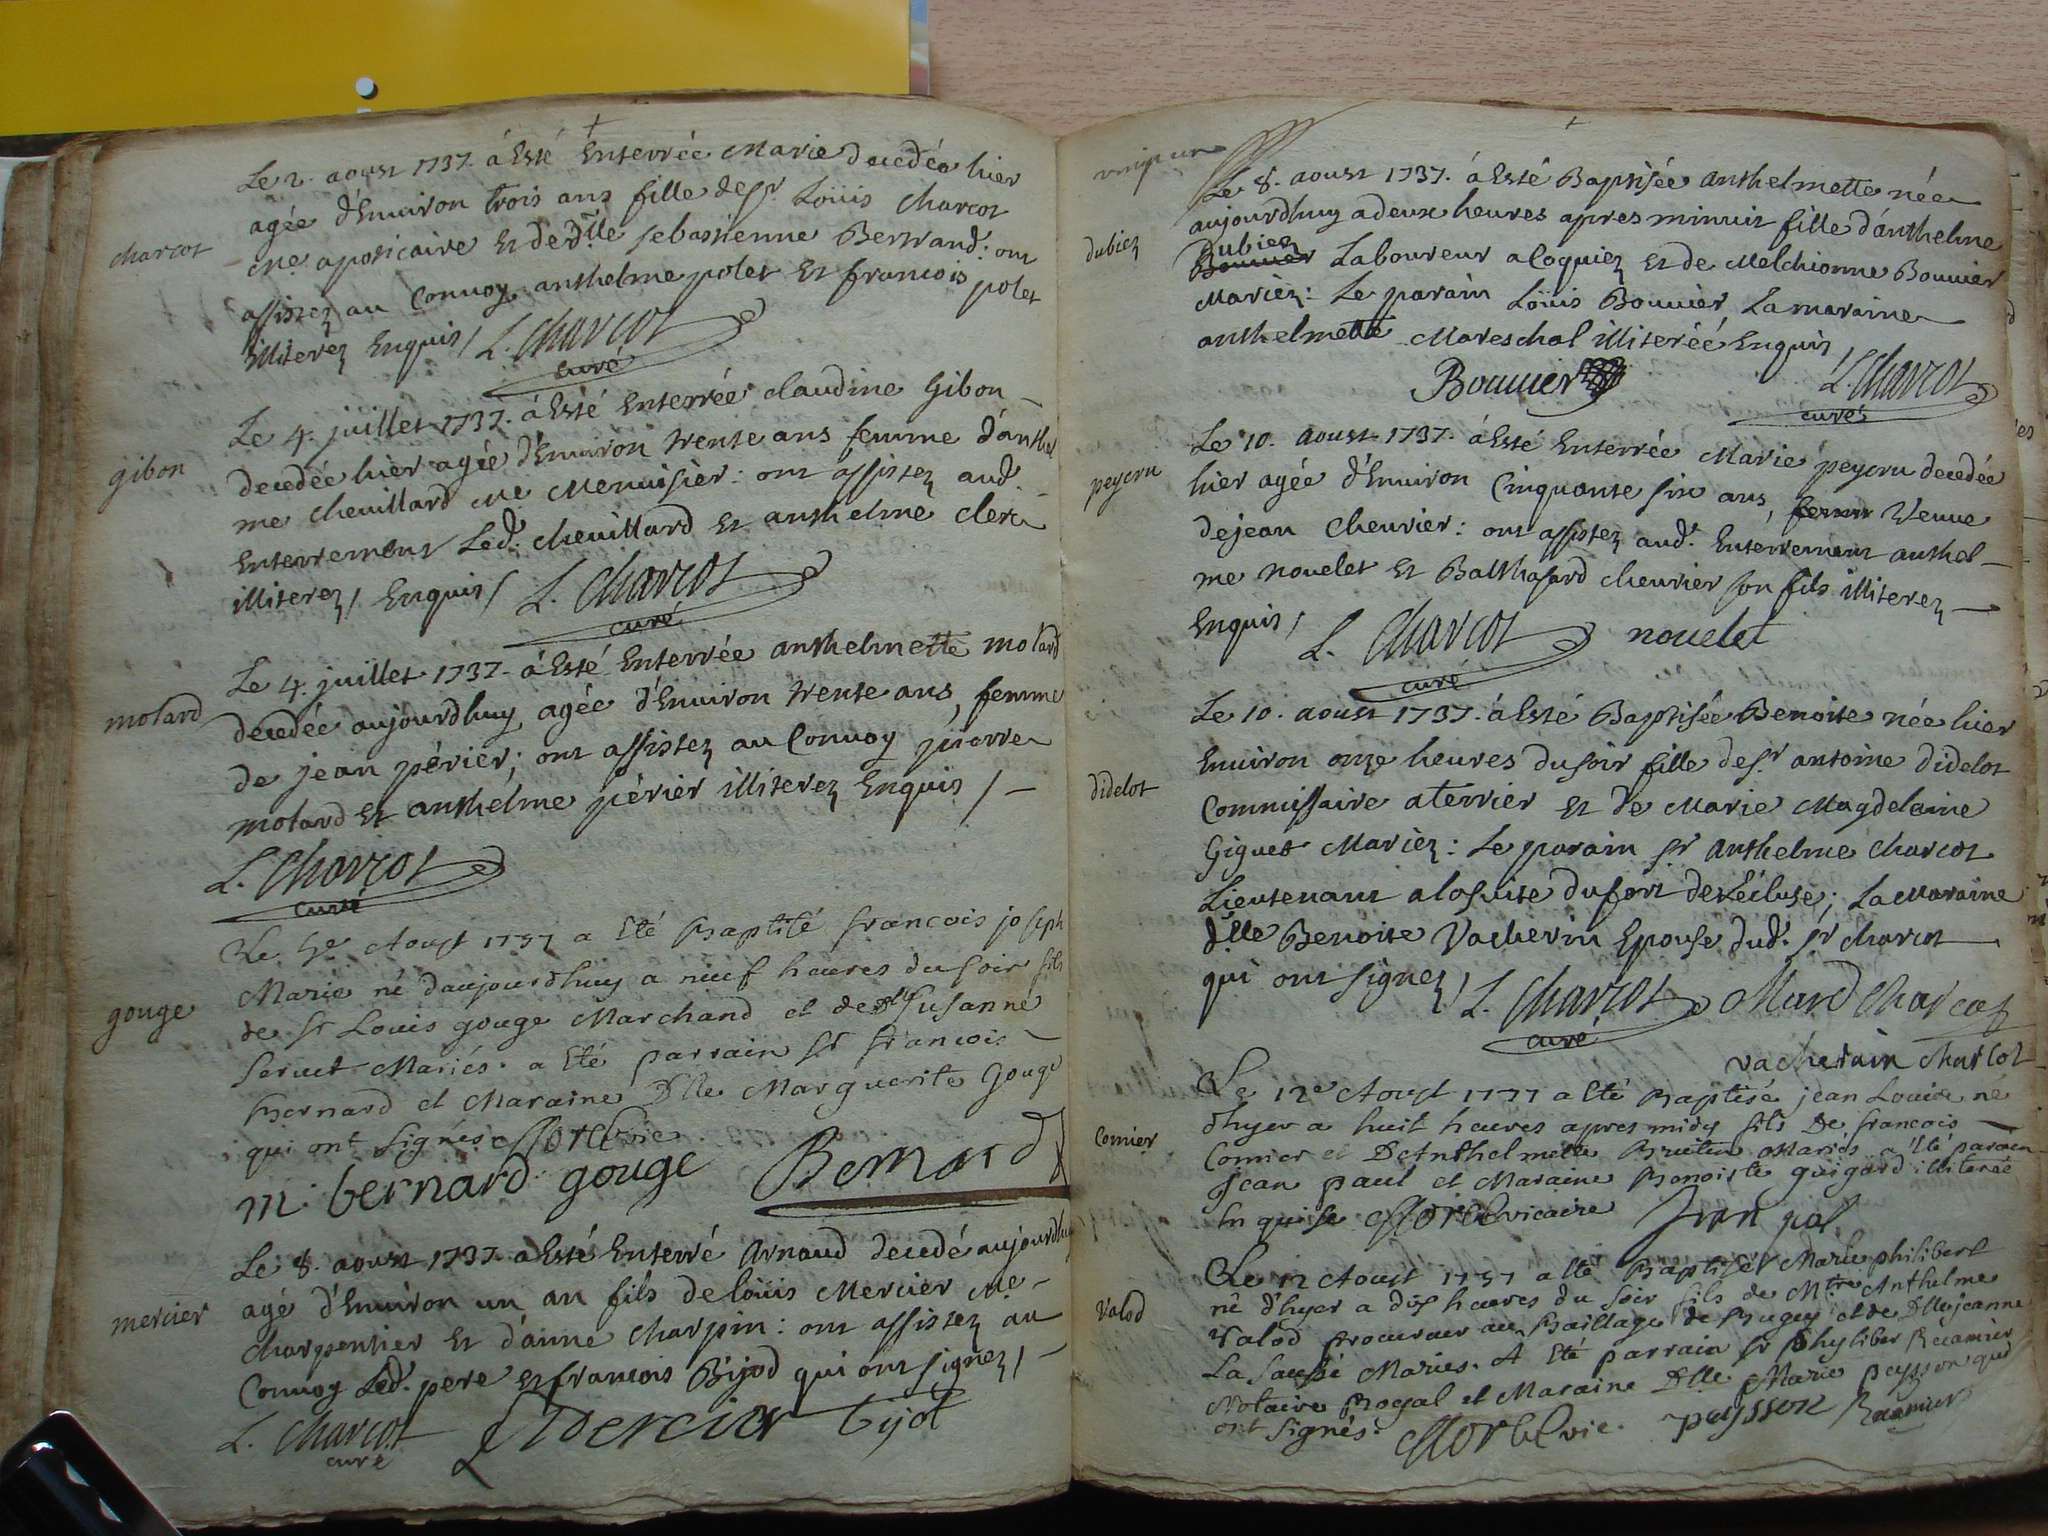 Le 2. aoust 1737. á Esté Enterrée Marie decedée hier
agée d'Enuiron trois ans fille de sr. Loüis charcot
charcot
Me. apoticaire Et de dlle sebastienne Bertrand: ont
assistez au Conuoy anthelme polet Et francois polet
illiterez Enquis / L. Charcot
curé
Le 4. juillet 1737. á Esté Enterrée claudine Gibon
gibon
decedée hier agée d'Enuiron trente ans femme d'anthel
me cheuillard Me Menuisier: ont assistez aud.
Enterrement Led. cheuillard Et anthelme clerc
illiterez / Enquis / L. Charcot
curé
Le 4. juillet 1737. á Esté Enterrée anthelmette molard
molard
decedée aujourdhuy agée d'Enuiron trente ans, femme
de jean périer; ont assistez au Conuoy pierre
molard Et anthelme périer illiterez Enquis /
L. Charcot
curé
Le 5e Aoust 1737 a Eté Baptisé francois joseph
Marie né daujourdhuy a neuf heures du soir fils
gouge
de sr Louis gouge Marchand et de Dlle Susanne
seruet Mariés. a Eté parrain sr francois
Bernard et Maraine Dlle Marguerite gouge
qui ont signés vic
m. bernard gouge Bernard
Le 8. aoust 1737. a Esté Enterré Arnaud decedé aujourdhuy
mercier
agé d'Enuiron un an fils de loüis Mercier Me
charpentier Et d'anne charpin: ont assistez au
Conuoy Led. pere et francois Bijod qui ont signez /
L. Charcot Mercier bijot
curé
vingt un
Le 8. aoust 1737. á Esté Baptisée anthelmette née
aujourdhuy a deux heures apres minuit fille d'anthelme
dubiez
Dubiez
Bouuier Laboureur a Coquiez Et de Melchionne Bouuier
Mariez: Le parain Loüis Bouuier, La maraine
anthelmette Mareschal illiterée Enquis /
Bouuier L Charcot
curé
Le 10. aoust 1737. á Esté Enterrée Marie peycru decedée
peycru
hier agée d'Enuiron Cinquante six ans, femm Veuue
de jean Cheurier: ont assistez aud. Enterrement anthel-
me nouelet Et Balthasard cheurier son fils illiterez
Enquis / L. Charcot nouelet
curé
Le 10. aoust 1737. á Esté Baptisée Benoite née hier
Enuiron onze heures du soir fille de sr antoine didelot
didelot
Commissaire a terrier Et de Marie Magdelaine
Giguet Mariez: Le parain sr Anthelme charcot
Lieutenant a la suite du fort de L'écluse; La Maraine
dlle Benoite Vacherin Epouse dud. sr charcot
qui ont signez / L. Charcot Mard Charcot
curé
vacherain charcot
Le 12e Aoust 1737 a Eté Baptisé jean Louis né
dhyer a huit heures apres midy fils De francois
Comier
Comier et De Anthelmette Mariés a Eté parain
Jean paul et Maraine Benoiste guigard illiterée
Enquise vicaire Jean pol
Le 12 Aoust 1737 a Eté Baptisé Marie philibert
né d'hyer a dix heures du soir fils de Mtre Anthelme
Valod
Valod procureur au Baillage de Bugey et de Dlle jeanne
La sausse Mariés. A Eté parrain sr phyliber Recamier
Notaire Royal et Maraine Dlle Marie peysson qui
ont signés. vic. peysson Recamier